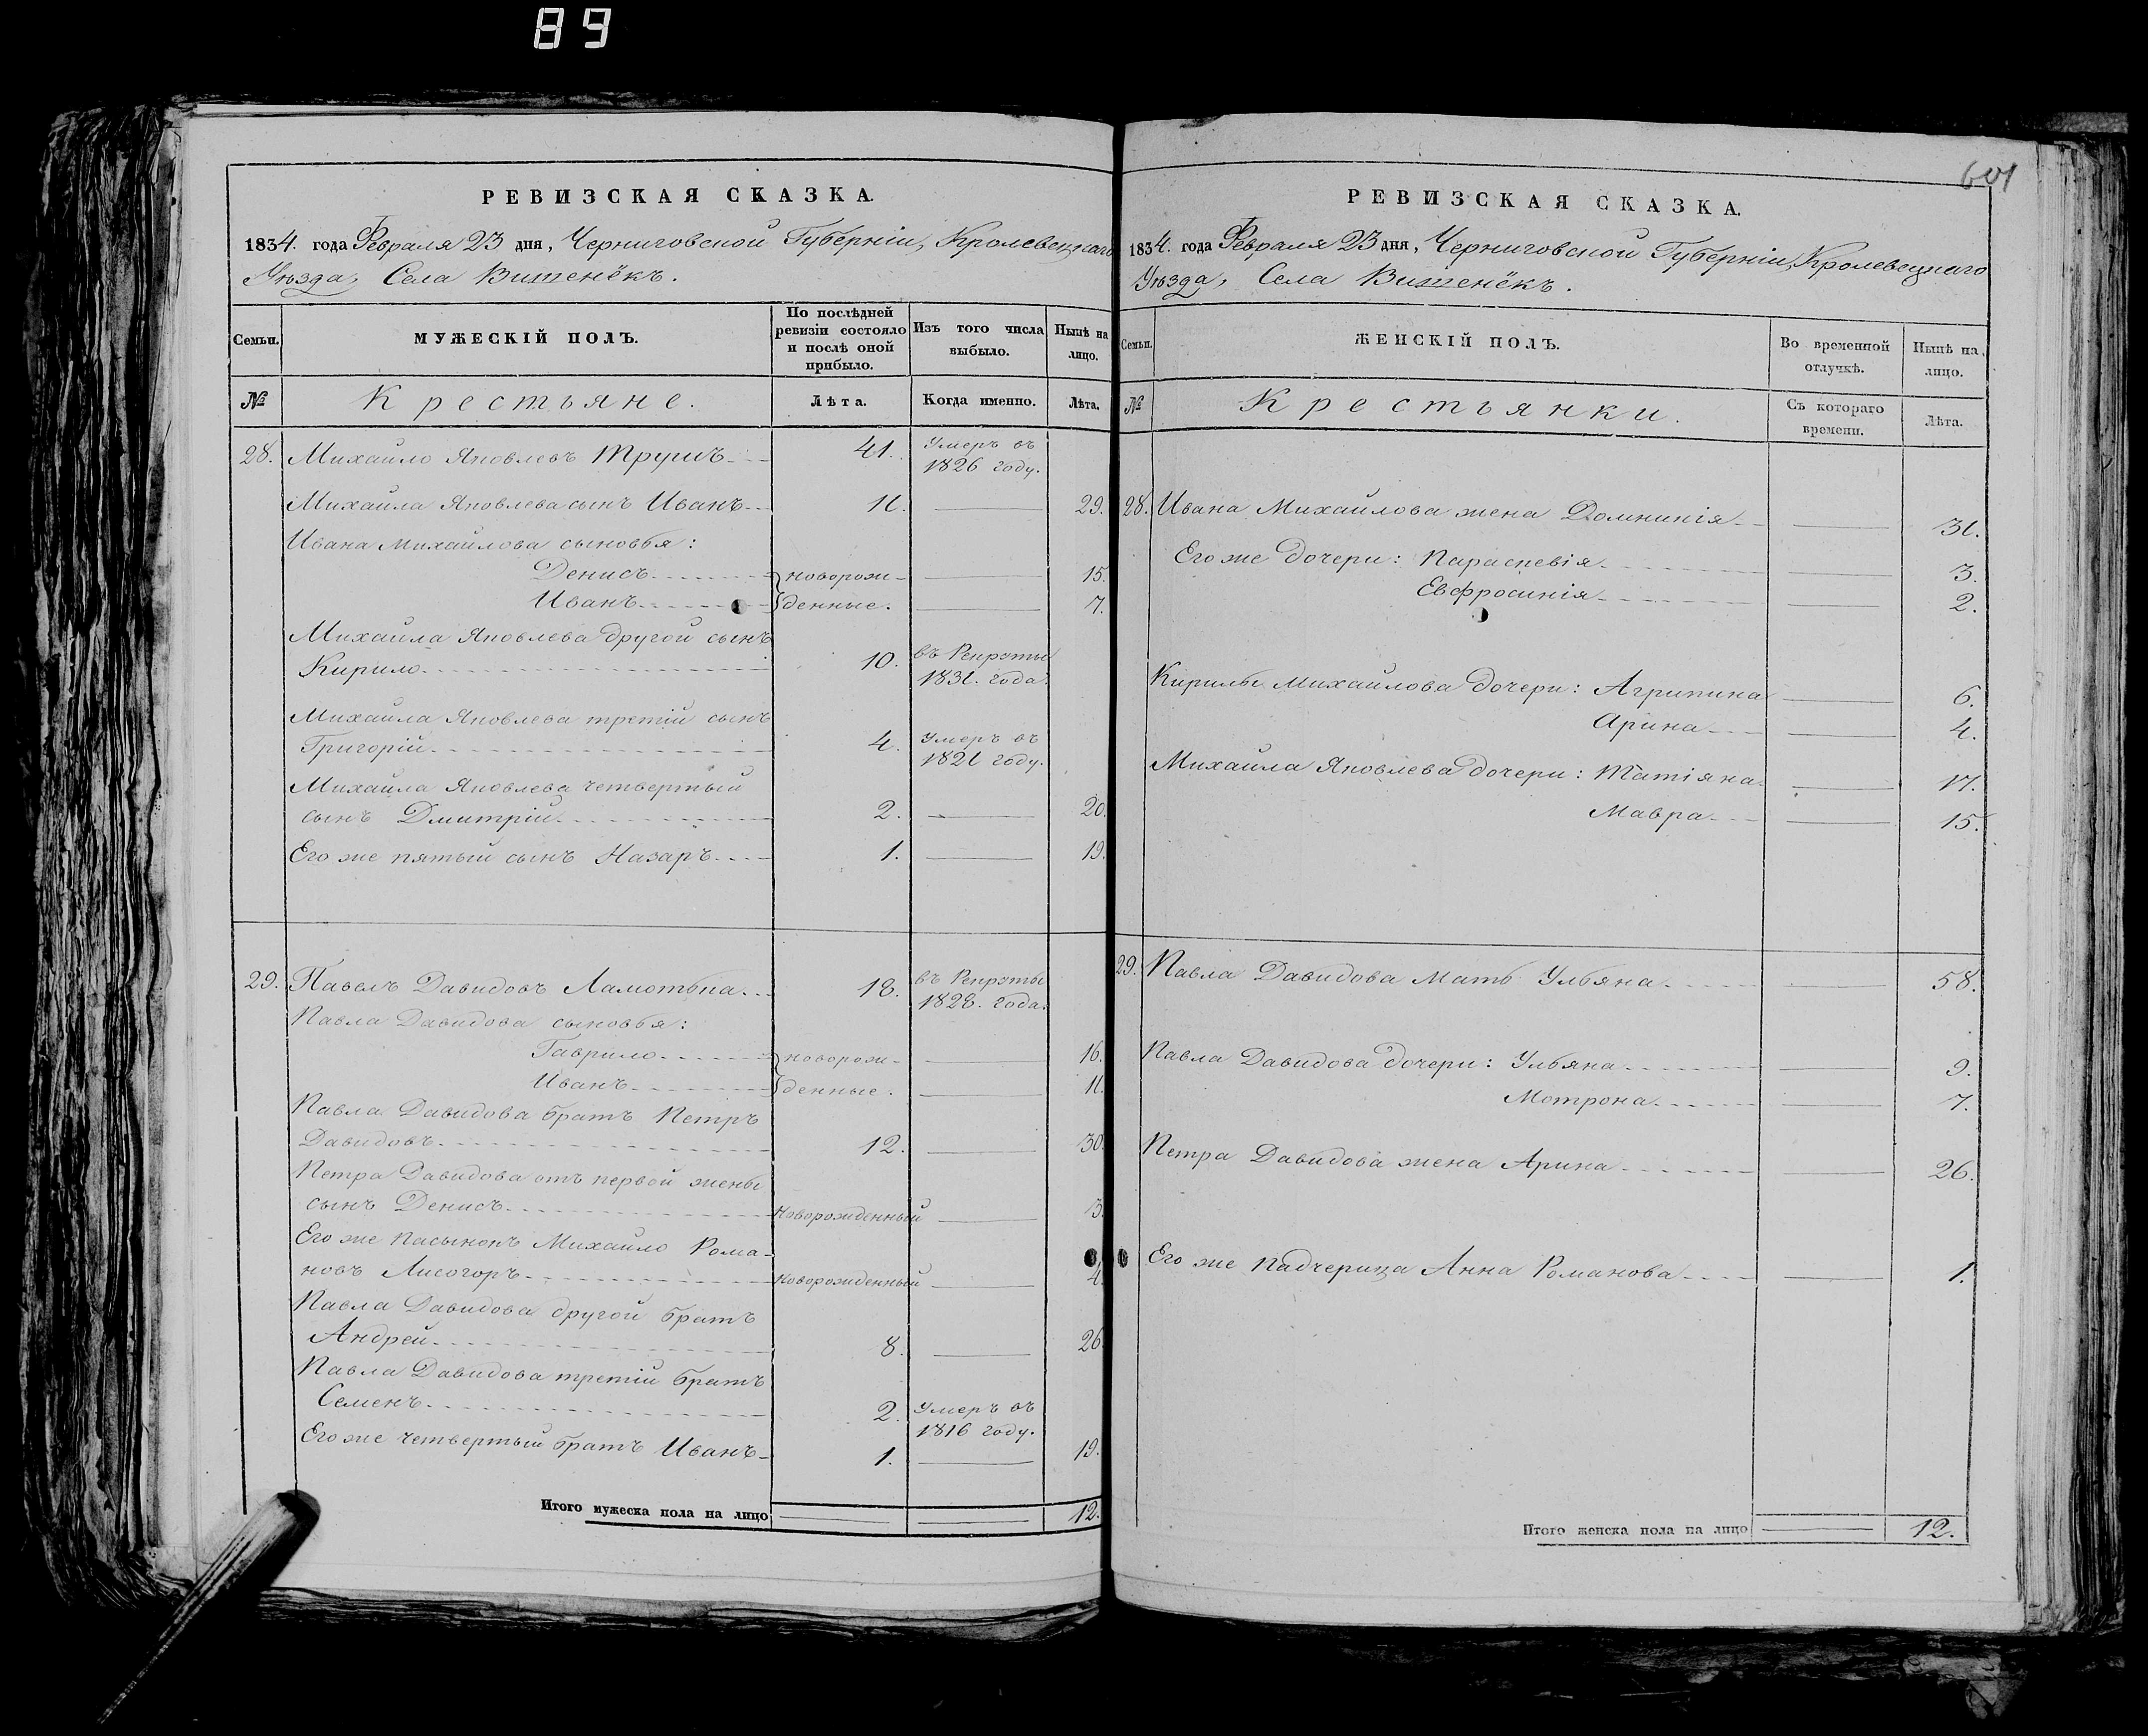 89
601
РЕВИЗСКАЯ СКАЗКА.
1834. года Февраля 23 дня, Черниговской Губерніи, Кролевецкаго
Уѣзда, Села Вишенёкъ.
Семьи.
МУЖЕСКІЙ ПОЛЪ.
По послѣдней ревизіи состояло и послѣ оной прибыло.
Изъ того числа выбыло.
Нынѣ на лицо.
№
Крестьяне.
Лѣта.
Когда именно.
Лѣта.
28. Михайло Яковлевъ Трушъ 41. Умеръ въ 1826 году.
Михайла Яковлева сынъ Иванъ 11. 29.
Ивана Михайлова сыновья:
Денисъ новорож- 15.
Иванъ денные. 7.
Михайла Яковлева другой сынъ
Кирило 10. въ Рекруты 1831. года.
Михайла Яковлева третій сынъ
Григорій 4. Умеръ въ 1821 году.
Михайла Яковлева четвертый
сынъ Дмитрій 2. 20.
Его же пятый сынъ Назаръ 1. 19.
29. Павелъ Давидовъ Ламотька 18. въ Рекруты 1828. года.
Павла Давидова сыновья:
Гаврило новорож- 16.
Иванъ денные. 11.
Павла Давидова братъ Петръ
Давидовъ 12. 30.
Петра Давидова отъ первой жены
сынъ Денисъ Новорожденный 3.
Его же пасынокъ Михайло Рома-
новъ Лисогоръ Новорожденный 4.
Павла Давидова другой братъ
Андрей 8. 26.
Павла Давидова третій братъ
Семенъ 2. Умеръ въ 1816 году.
Его же четвертый братъ Иванъ 1. 19.
Итого мужеска пола на лицо 12.
РЕВИЗСКАЯ СКАЗКА.
1834. года Февраля 23 дня, Черниговской Губерніи, Кролевецкаго
Уѣзда, Села Вишенёкъ.
Семьи.
ЖЕНСКІЙ ПОЛЪ.
Во временной отлучкѣ.
Нынѣ на лицо.
№
Крестьянки.
Съ котораго времени.
Лѣта.
28. Ивана Михайлова жена Домникія 31.
Его же дочери: Параскевія 3.
Евфросинія 2.
Кирилы Михайлова дочери: Агрипина 6.
Арина 4.
Михайла Яковлева дочери: Татіяна 17.
Мавра 15.
29. Павла Давидова Мать Ульяна 58.
Павла Давидова дочери: Ульяна 9.
Мотрона 7.
Петра Давидова жена Арина 26.
Его же падчерица Анна Романова 1.
Итого женска пола на лицо 12.